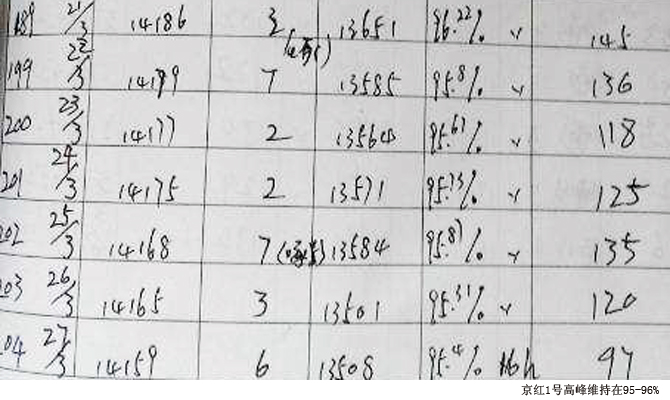 189 21/3 14186 3 13651 96.22% 145
199 22/3 14179 7 13585 95.8% 136
200 23/3 14177 2 13564 95.67% 118
201 24/3 14175 2 13571 95.73% 125
202 25/3 14168 7 13584 95.87% 135
203 26/3 14165 3 13501 95.31% 120
204 27/3 14159 6 13508 95.4% 16h 97
京红1号高峰维持在95-96%